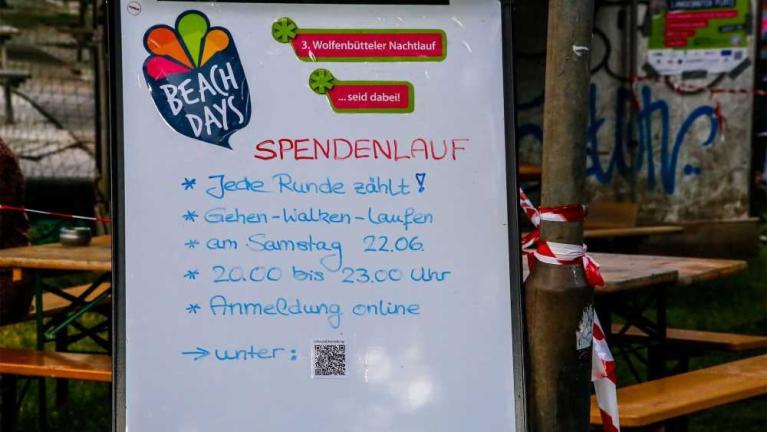 BEACH
DAYS
3. Wolfenbütteler Nachtlauf
...seid dabei!
SPENDENLAUF
* Jede Runde zählt!
* Gehen-Walken-Laufen
* am Samstag 22.06.
* 20.00 bis 23.00 Uhr
* Anmeldung online
→ unter: